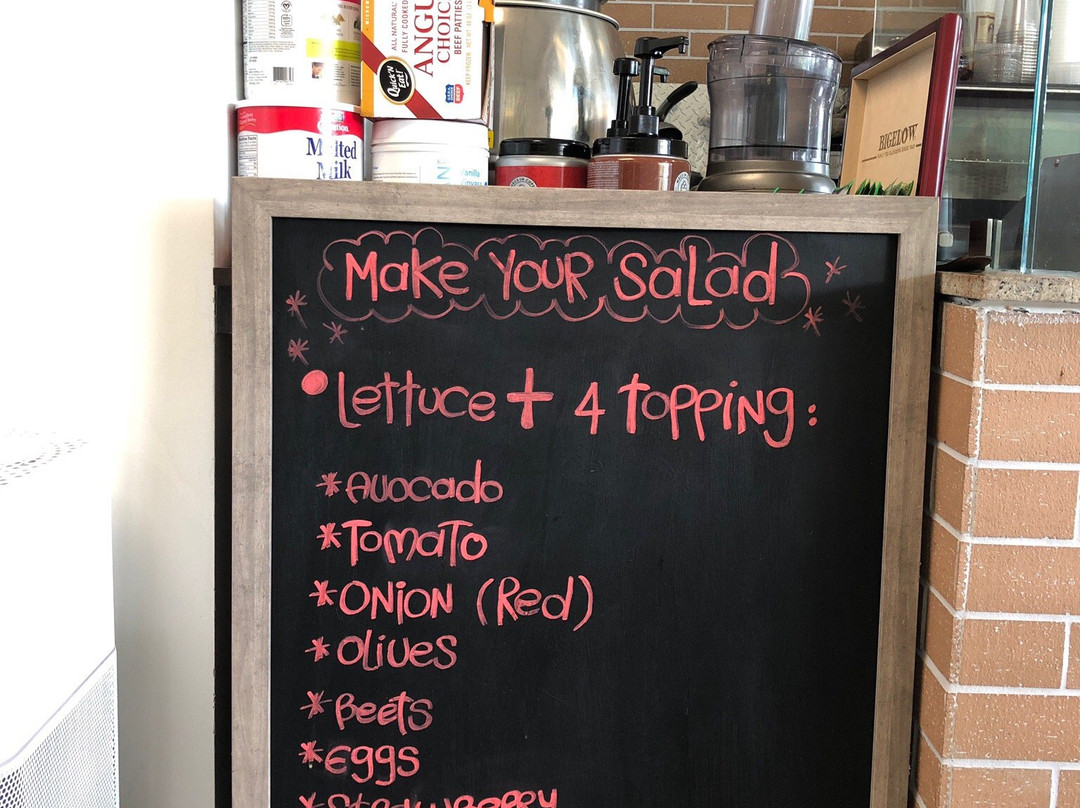 ALL NATURAL
FULLY COOKED
ANGU
CHOIC
BEEF PATTIES
KEEP FROZEN
Quick'N
Eat!
Malted
Milk
Vanilla
BIGELOW
Make YOUR SaLad
Lettuce + 4 topping:
*Avocado
*Tomato
*ONiON (Red)
*Olives
*Beets
*Eggs
*Strawberry